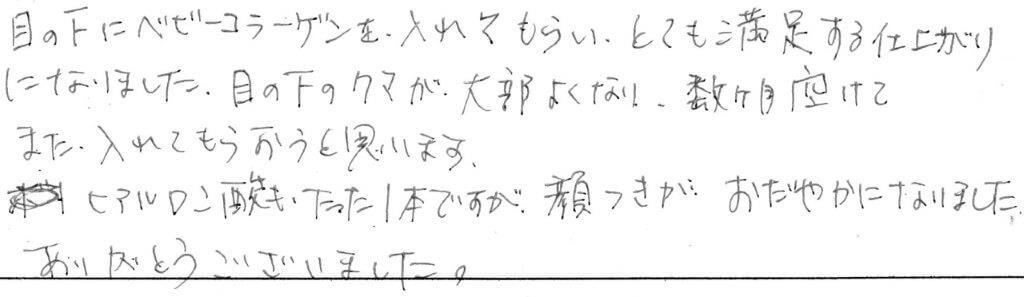 目の下にベビーコラーゲンを、入れてもらい、とても満足する仕上がり
になりました。目の下のクマが、大部よくなり、数ヶ月空けて
また、入れてもらおうと思います。
ヒアルロン酸も、たった1本ですが、顔つきが、おだやかになりました。
ありがとうございました。